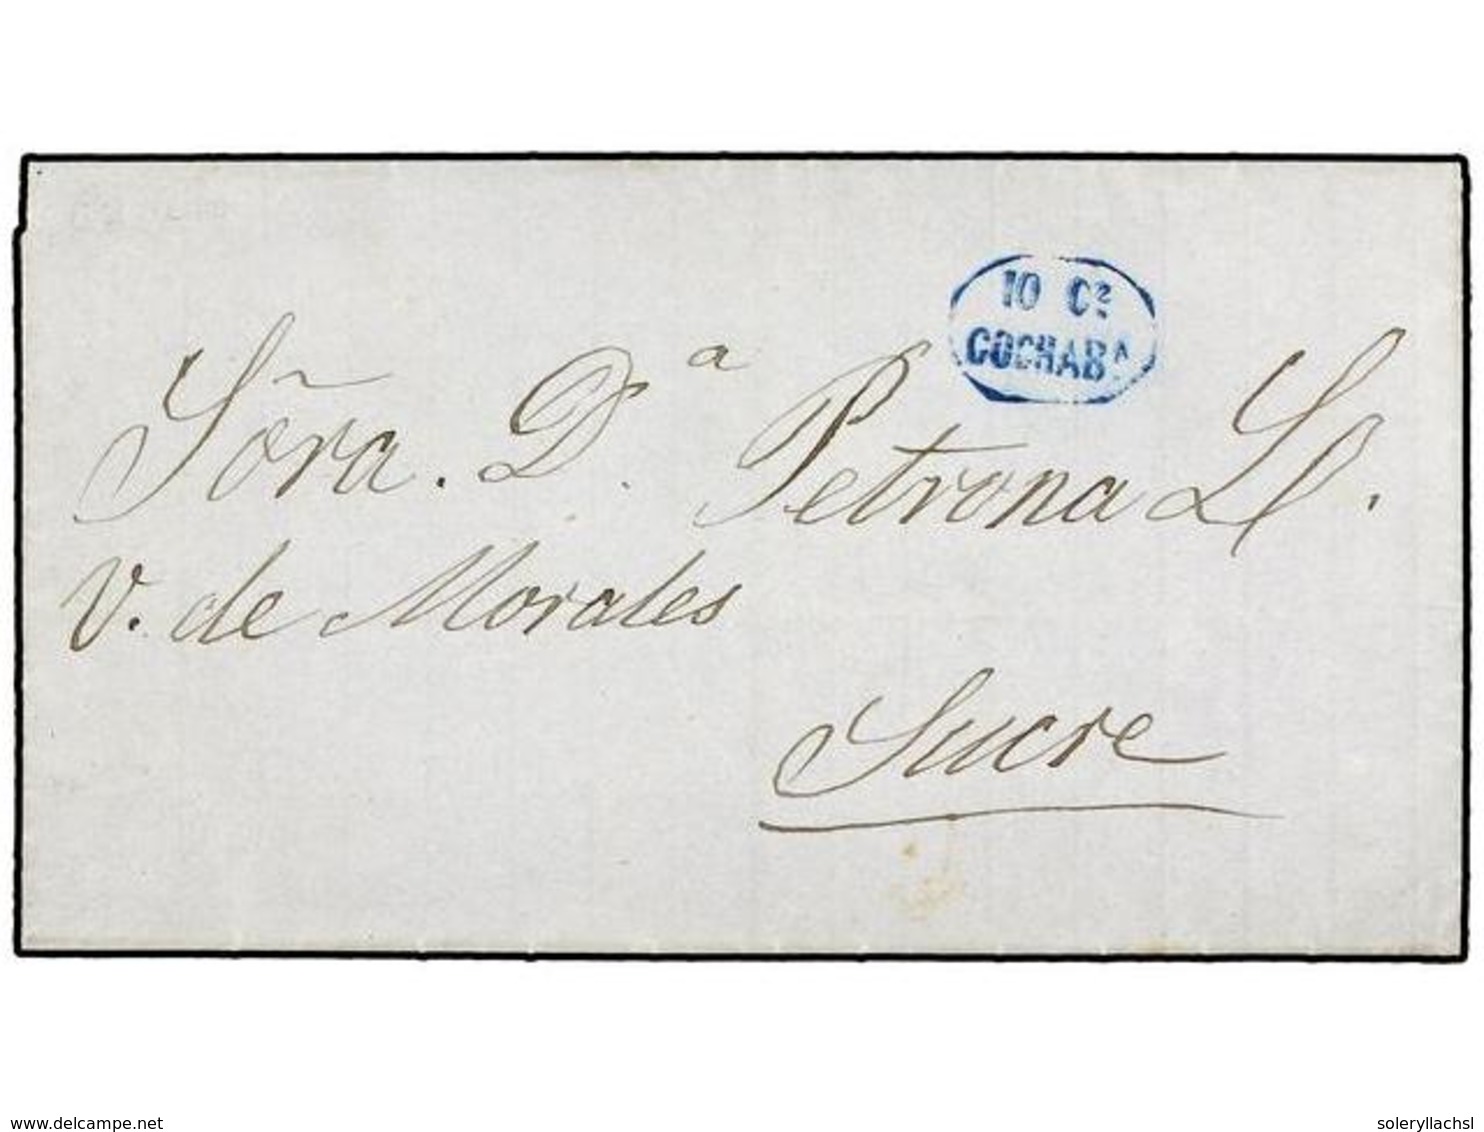 10 Cs
COCHABA
Sõra. D.a Petrona
V. de Morales
Sucre
delcampe.net
soleryllachsl